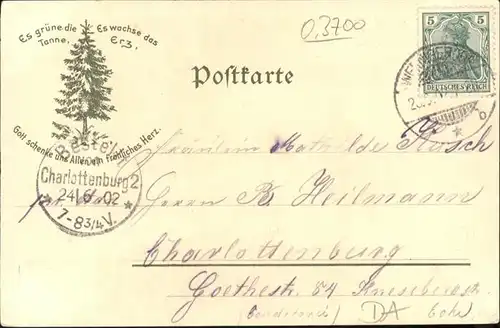 0,3700
Es grüne die Es wachse das
Tanne, Erz,
Gott schenke uns Allen ein fröhliches Herz.
Postkarte
5 5
DEUTSCHES REICH
Bestellt
Charlottenburg 2
24/6 02
7-8 3/4 V.
Fräulein Mathilde
Herrn R Heilmann
Charlottenburg
Goethestr. 84
DA Ecke